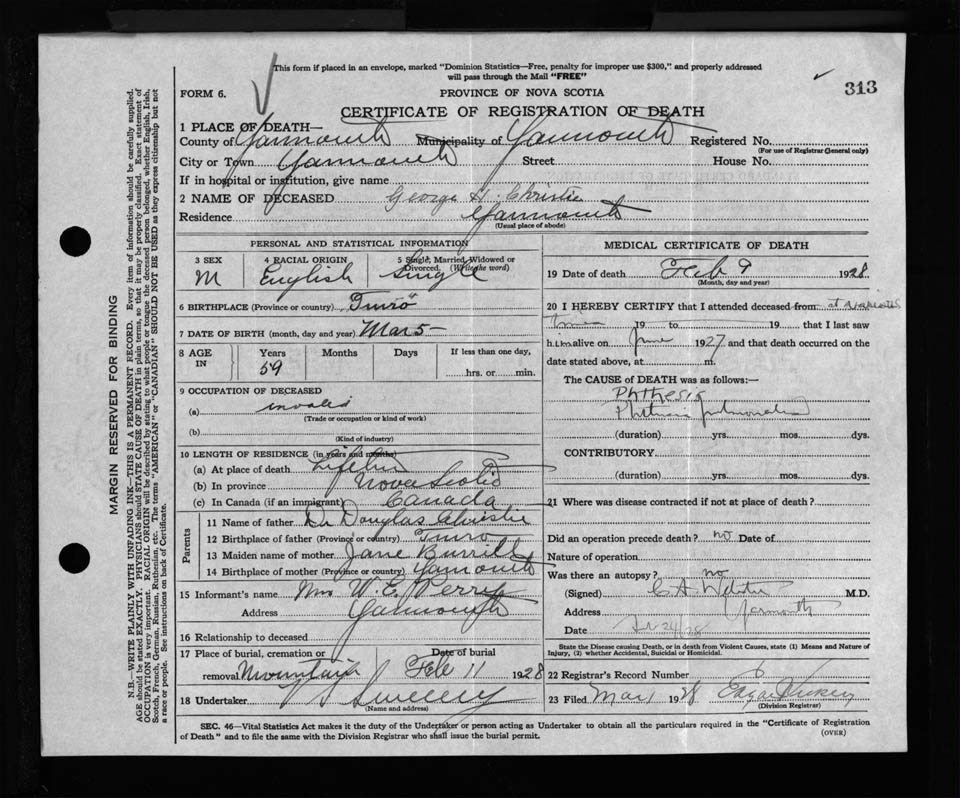 This form if placed in an envelope, marked "Dominion Statistics—Free, penalty for improper use $300," and properly addressed
will pass through the Mail "FREE"
313
FORM 6.
PROVINCE OF NOVA SCOTIA
CERTIFICATE OF REGISTRATION OF DEATH
1 PLACE OF DEATH—
County of Yarmouth Municipality of Yarmouth Registered No.
(For use of Registrar General only)
City or Town Yarmouth Street House No.
If in hospital or institution, give name
2 NAME OF DECEASED George H. Christie
Residence Yarmouth
(Usual place of abode)
PERSONAL AND STATISTICAL INFORMATION
3 SEX 4 RACIAL ORIGIN 5 Single, Married, Widowed or
Divorced. (Write the word)
M English Single
6 BIRTHPLACE (Province or country) Truro
7 DATE OF BIRTH (month, day and year) Mar 5—
8 AGE IN Years Months Days If less than one day,
59 hrs. or min.
9 OCCUPATION OF DECEASED
(a) invalid
(Trade or occupation or kind of work)
(b)
(Kind of industry)
10 LENGTH OF RESIDENCE (in years and months)
(a) At place of death Lifetime
(b) In province Nova Scotia
(c) In Canada (if an immigrant) Canada
Parents
11 Name of father Dr Douglas Christie
12 Birthplace of father (Province or country) Truro
13 Maiden name of mother Jane Burrill
14 Birthplace of mother (Province or country) Yarmouth
15 Informant's name Mrs W. E. Perry
Address Yarmouth
16 Relationship to deceased
17 Place of burial, cremation or Date of burial
removal Mountain Feb 11 1928
18 Undertaker Sweeny
(Name and address)
MEDICAL CERTIFICATE OF DEATH
19 Date of death Feb 9 1928
(Month, day and year)
20 I HEREBY CERTIFY that I attended deceased from: at separate
times 19 to 19 that I last saw
him alive on June 1927 and that death occurred on the
date stated above, at m.
The CAUSE of DEATH was as follows:—
Phthesis
Phthisis pulmonalis
(duration) yrs. mos. dys.
CONTRIBUTORY
(duration) yrs. mos. dys.
21 Where was disease contracted if not at place of death?
Did an operation precede death? no Date of
Nature of operation
Was there an autopsy? no
(Signed) C A Webster M.D.
Address Yarmouth
Date 24/28
State the Disease causing Death, or in death from Violent Causes, state (1) Means and Nature of
Injury, (2) whether Accidental, Suicidal or Homicidal.
22 Registrar's Record Number 6
23 Filed Mar 1 1928 Edgar
(Division Registrar)
SEC. 46—Vital Statistics Act makes it the duty of the Undertaker or person acting as Undertaker to obtain all the particulars required in the "Certificate of Registration
of Death" and to file the same with the Division Registrar who shall issue the burial permit.
(OVER)
MARGIN RESERVED FOR BINDING
N.B.—WRITE PLAINLY WITH UNFADING INK—THIS IS A PERMANENT RECORD. Every item of information should be carefully supplied.
AGE should be stated EXACTLY. PHYSICIANS should STATE CAUSE OF DEATH in plain terms, so that it may be properly classified. Exact statement of
OCCUPATION is very important. RACIAL ORIGIN will be described by stating to what people or tongue the deceased person belonged, whether English, Irish,
Scotch, French, German, Russian, Ruthenian, etc. The terms "AMERICAN" or "CANADIAN" SHOULD NOT BE USED as they express citizenship but not
a race or people. See instructions on back of Certificate.